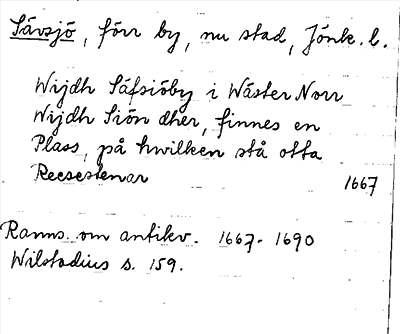 Sävsjö, förr by, nu stad, Jönk. l.
Wijdh Säfsiöby i Wäster Norr
Wijdh Siön dher, finnes en
Plass, på hwilken stå otta
Reesestenar 1667
Ranns. om antikv. 1667-1690
Wilstadius s. 159.